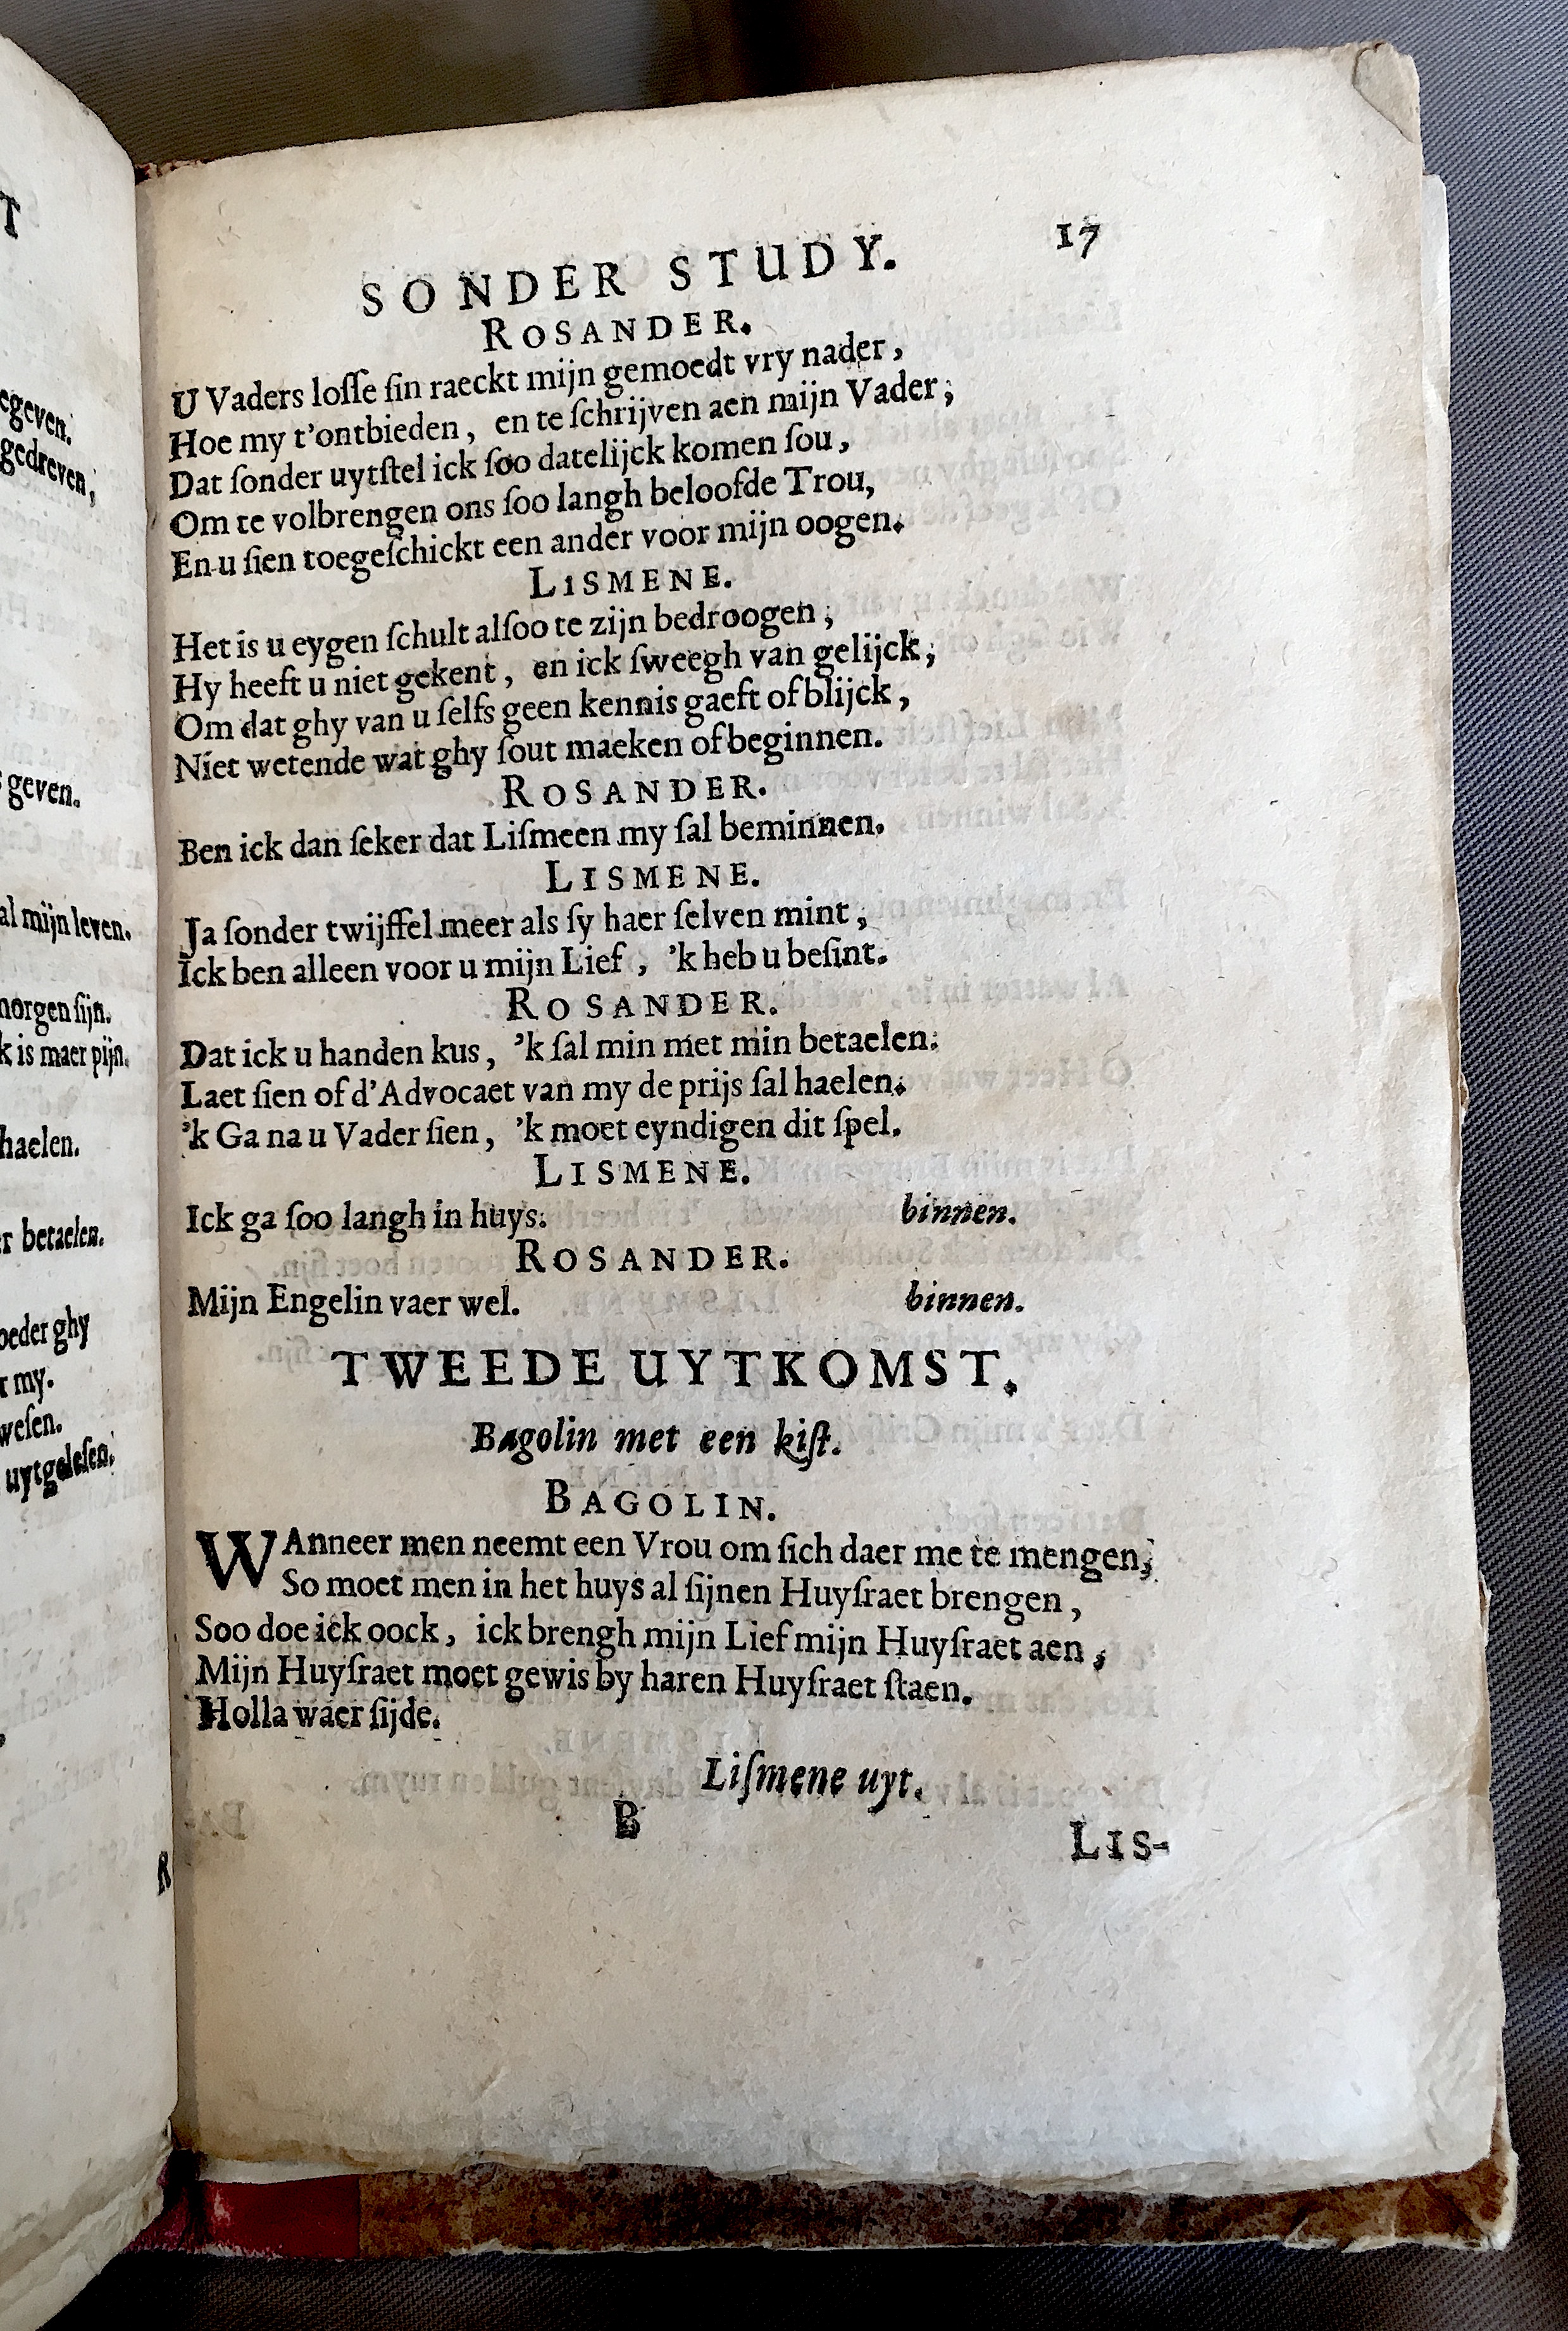 T
egeven.
gedreven,
geven.
al mijn leven.
morgen sijn.
k is maer pijn.
haelen.
betaelen.
oeder ghy
my.
wesen.
uytgelesen.
R
17
SONDER STUDY.
ROSANDER.
U Vaders losse sin raeckt mijn gemoedt vry nader,
Hoe my t'ontbieden, en te schrijven aen mijn Vader;
Dat sonder uytstel ick soo datelijck komen sou,
Om te volbrengen ons soo langh beloofde Trou,
En u sien toegeschickt een ander voor mijn oogen.
LISMENE.
Het is u eygen schult alsoo te zijn bedroogen;
Hy heeft u niet gekent, en ick sweegh van gelijck;
Om dat ghy van u selfs geen kennis gaeft of blijck,
Niet wetende wat ghy sout maeken of beginnen.
ROSANDER.
Ben ick dan seker dat Lismeen my sal beminnen.
LISMENE.
Ja sonder twijffel meer als sy haer selven mint,
Ick ben alleen voor u mijn Lief, 'k heb u besint.
ROSANDER.
Dat ick u handen kus, 'k sal min met min betaelen.
Laet sien of d'Advocaet van my de prijs sal haelen.
'k Ga na u Vader sien, 'k moet eyndigen dit spel.
LISMENE.
Ick ga soo langh in huys. binnen.
ROSANDER.
Mijn Engelin vaer wel. binnen.
TWEEDE UYTKOMST.
Bagolin met een kist.
BAGOLIN.
WAnneer men neemt een Vrou om sich daer me te mengen,
So moet men in het huys al sijnen Huysraet brengen,
Soo doe ick oock, ick brengh mijn Lief mijn Huysraet aen,
Mijn Huysraet moet gewis by haren Huysraet staen.
Holla waer sijde.
Lismene uyt.
B
LIS-